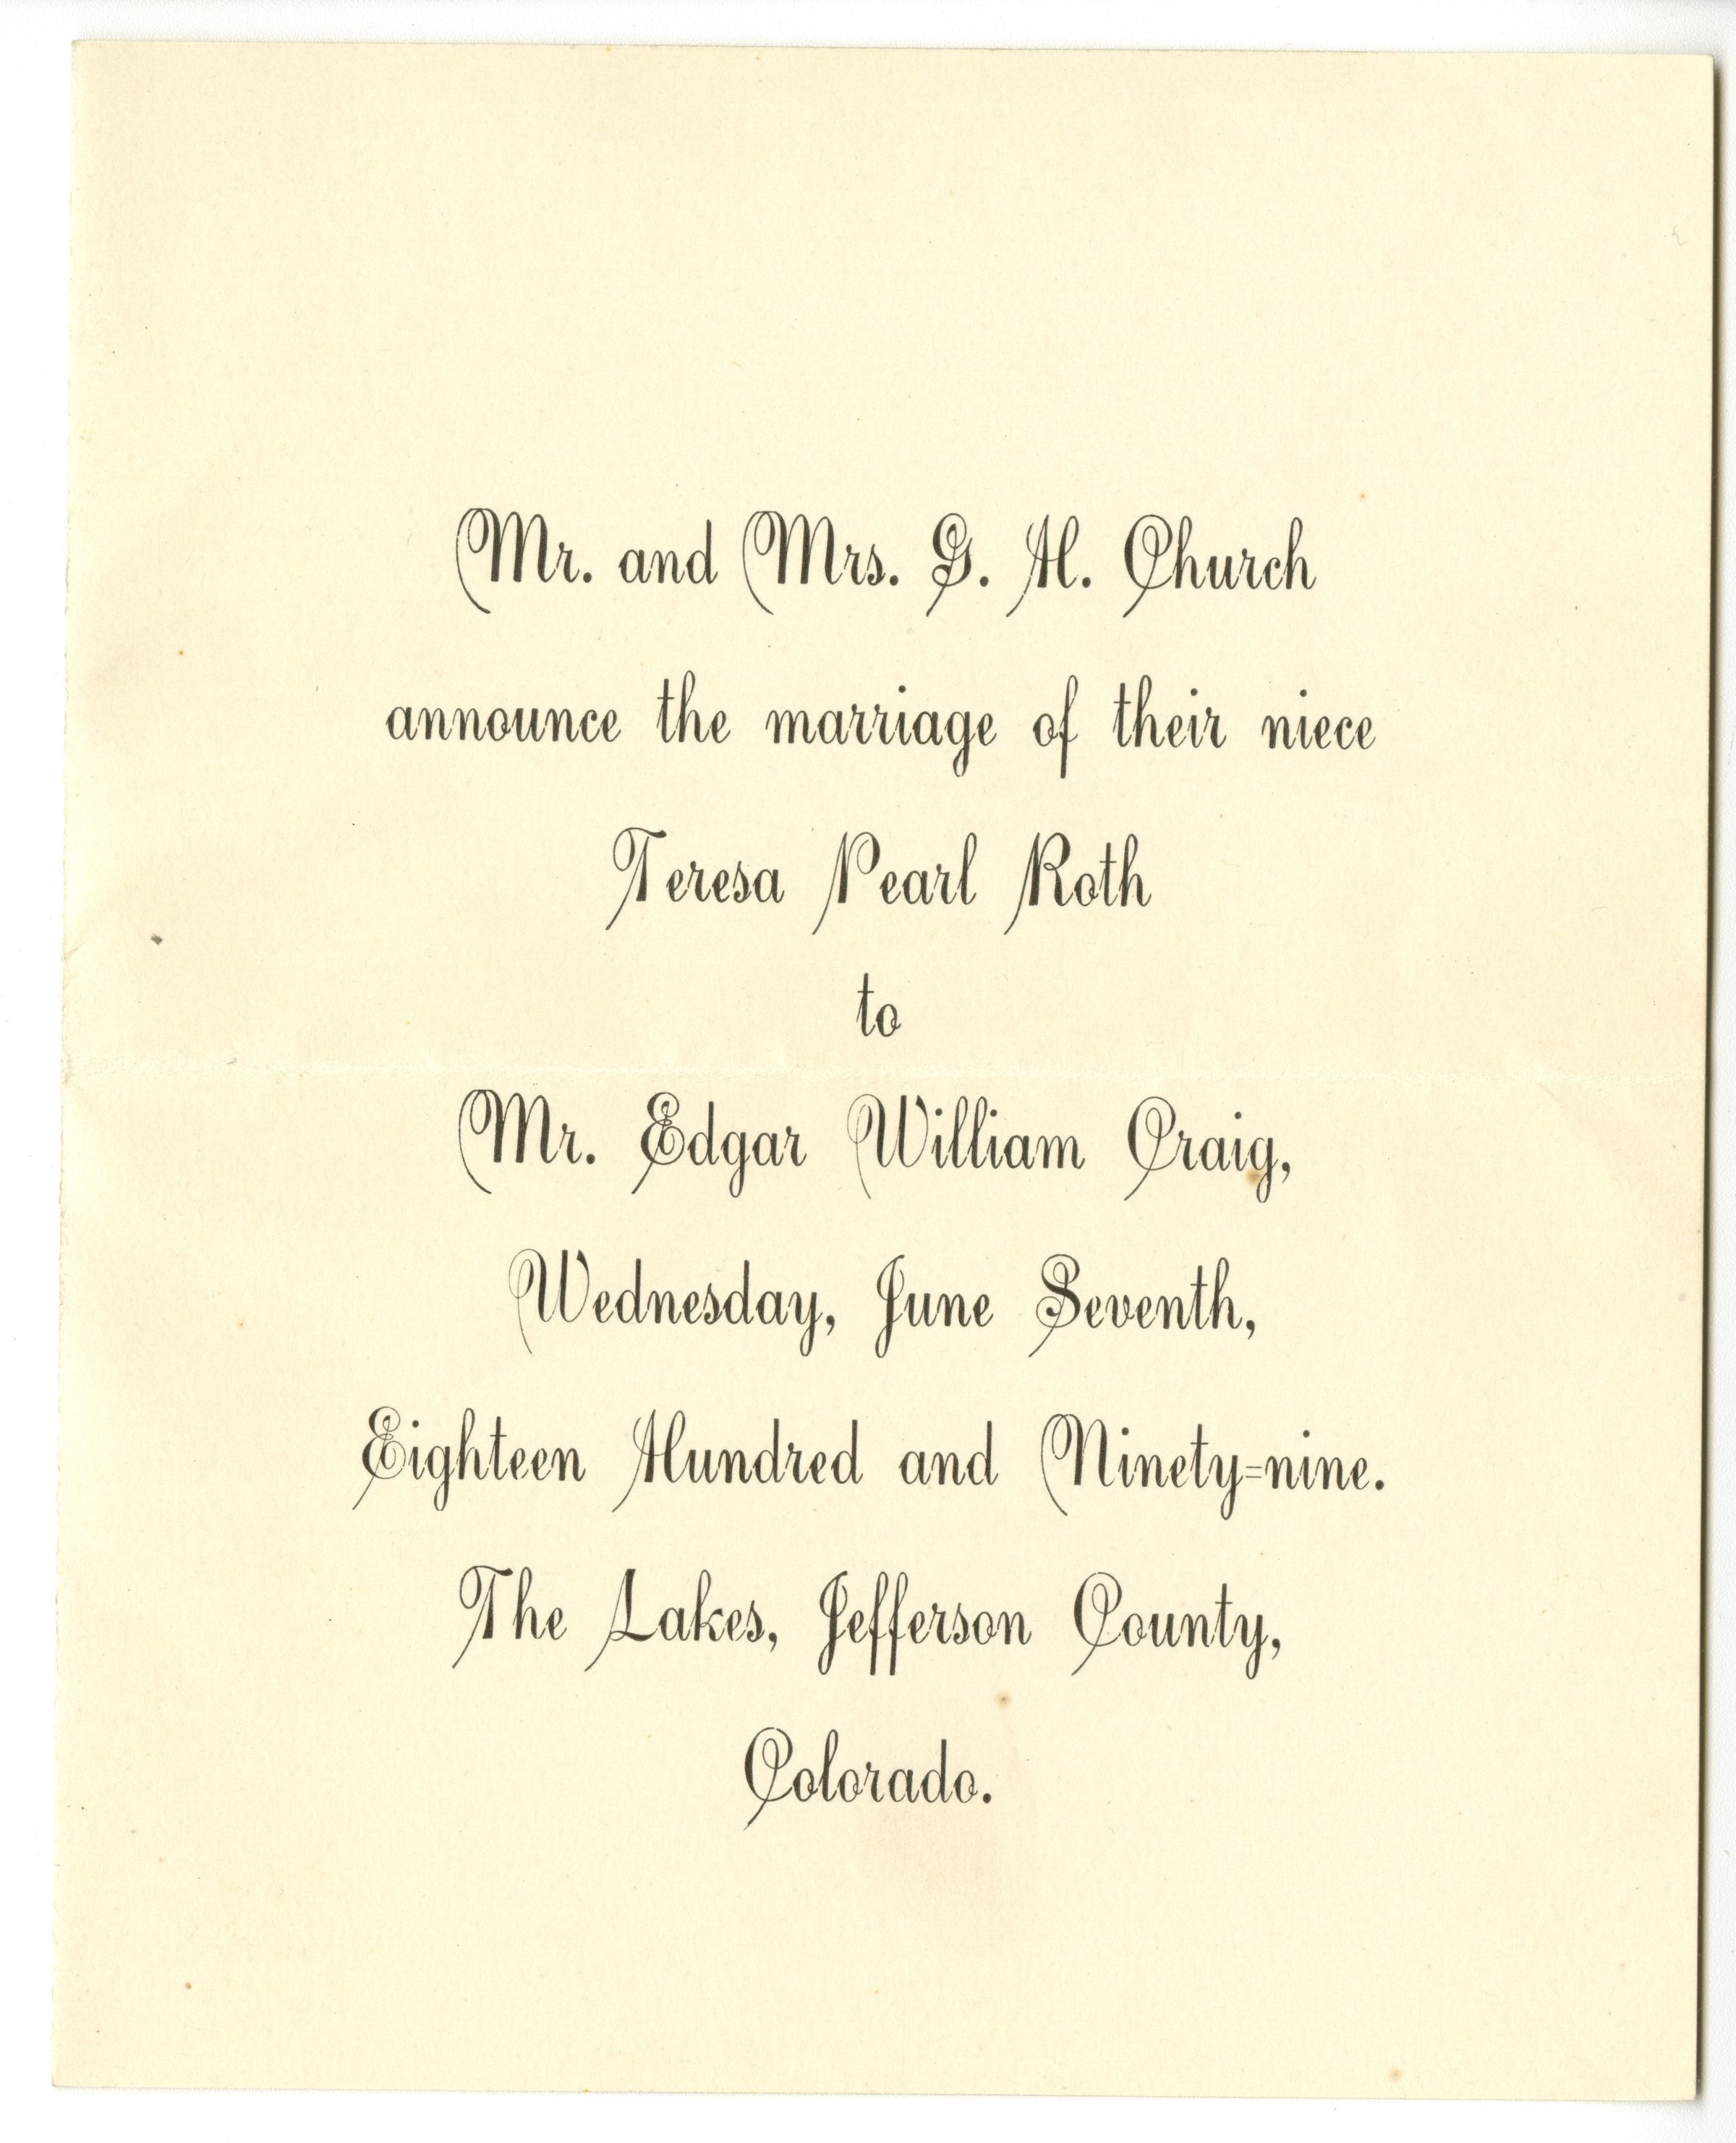 Mr. and Mrs. G. H. Church
announce the marriage of their niece
Teresa Pearl Roth
to
Mr. Edgar William Craig,
Wednesday, June Seventh,
Eighteen Hundred and Ninety=nine.
The Lakes, Jefferson County,
Colorado.